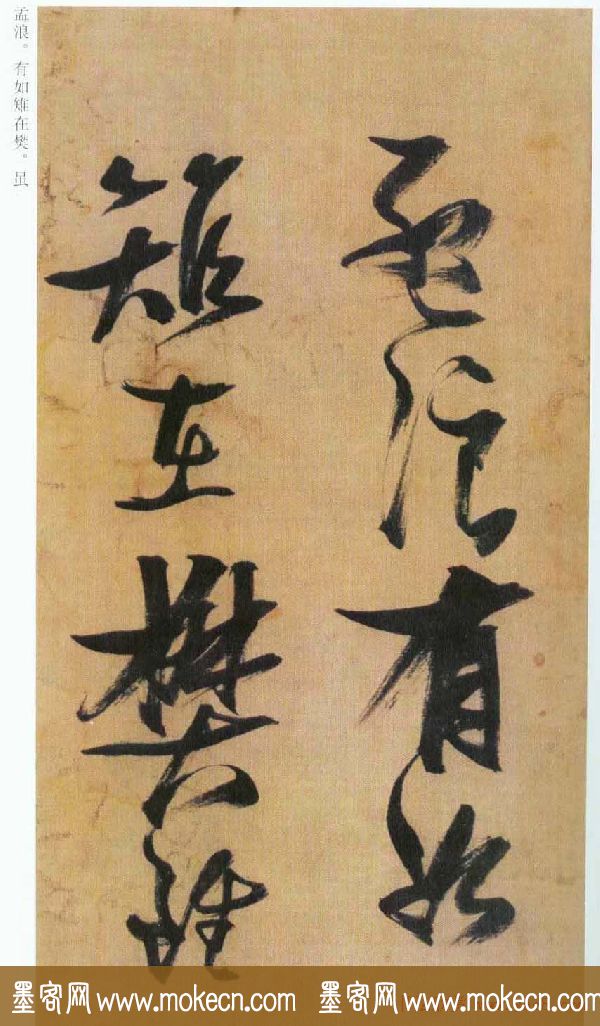 孟浪有如
雉在樊雖
孟浪。有如雉在樊。虽
墨客网 www.mokecn.com 墨客网 www.mokecn.com